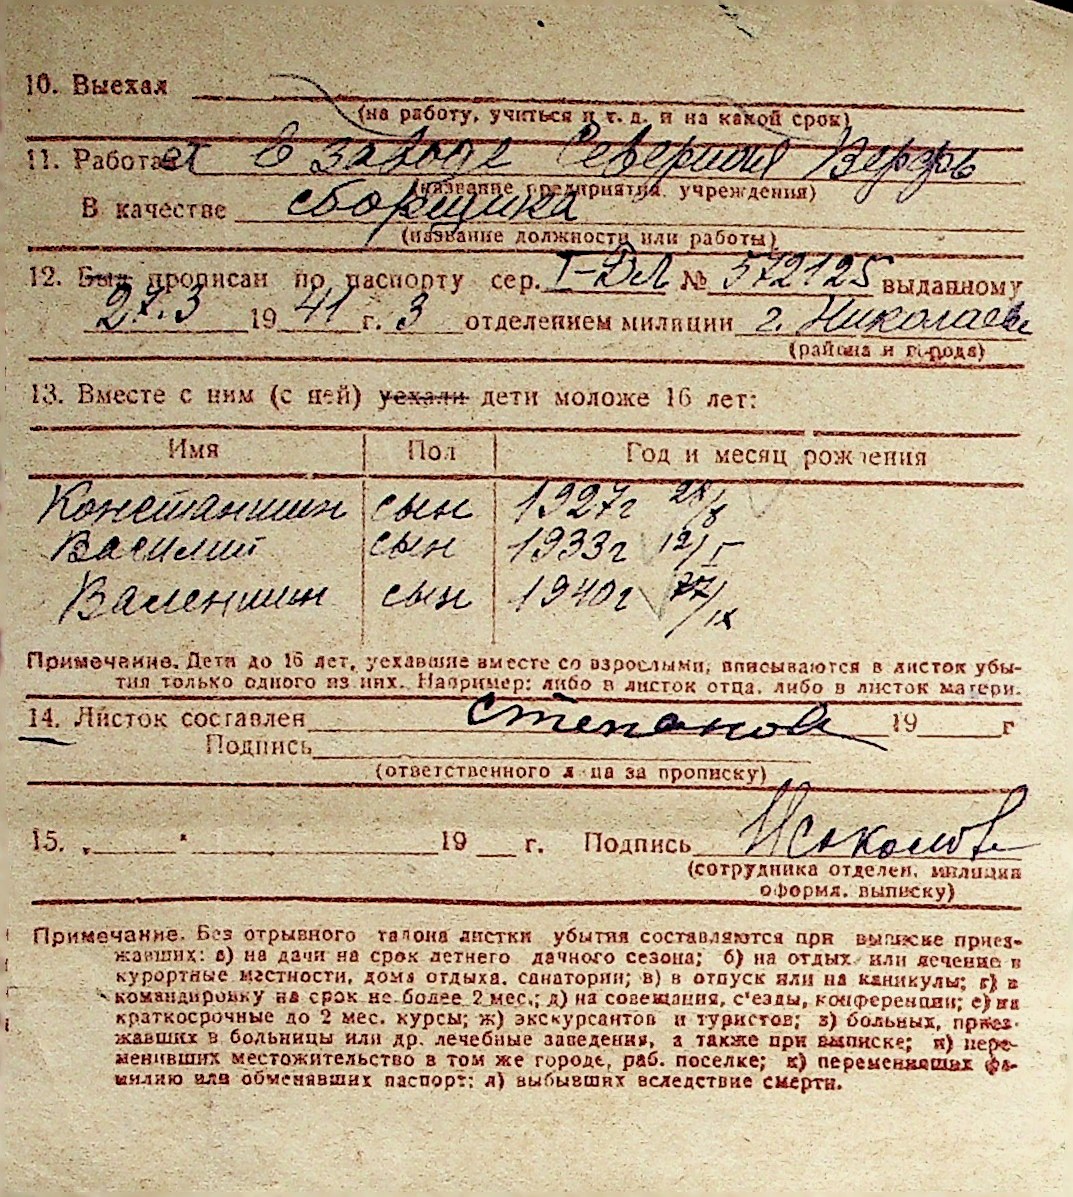 10. Выехал
(на работу, учиться и т. д. и на какой срок)
11. Работает в заводе Северная Верфь
(название предприятия, учреждения)
В качестве сборщика
(название должности или работы)
12. Был прописан по паспорту сер. I-ДЛ № 572125 выданному
27.3 1941 г. 3 отделением милиции г. Николаева
(района и города)
13. Вместе с ним (с ней) уехали дети моложе 16 лет:
Имя Пол Год и месяц рождения
Константин сын 1927г
Василий сын 1933г 12/I
Валентин сын 1940г /IX
Примечание. Дети до 16 лет, уехавшие вместе со взрослыми, вписываются в листок убы-
тия только одного из них. Например: либо в листок отца, либо в листок матери.
14. Листок составлен Степанова 19 г
Подпись
(ответственного лица за прописку)
15. „ “ 19 г. Подпись Соколов
(сотрудника отделен. милиции
оформл. выписку)
Примечание. Без отрывного талона листки убытия составляются при выписке приез-
жавших: а) на дачи на срок летнего дачного сезона; б) на отдых или лечение в
курортные местности, дома отдыха, санатории; в) в отпуск или на каникулы; г) в
командировку на срок не более 2 мес.; д) на совещания, с'езды, конференции; е) на
краткосрочные до 2 мес. курсы; ж) экскурсантов и туристов; з) больных, приез-
жавших в больницы или др. лечебные заведения, а также при выписке; и) пере-
менивших местожительство в том же городе, раб. поселке; к) переменивших фа-
милию или обменявших паспорт; л) выбывших вследствие смерти.